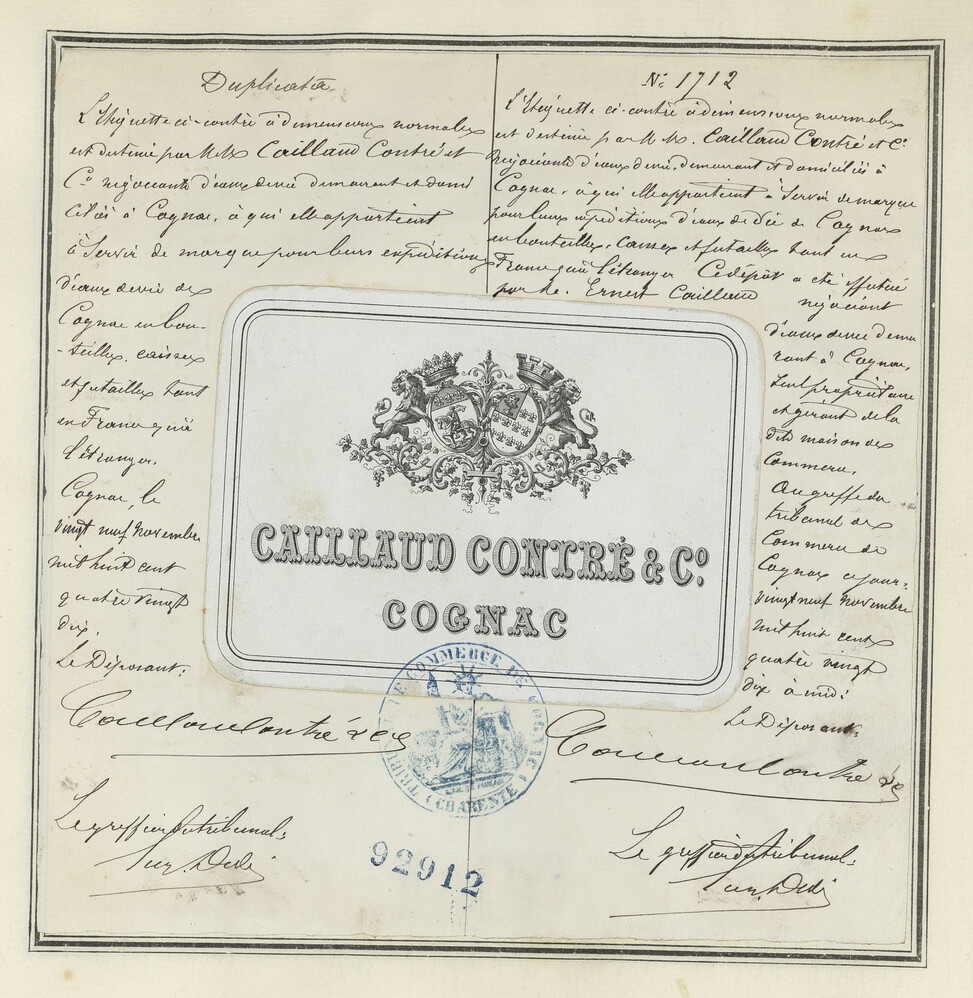 Duplicata
L'Etiquette ci-contre à dimensions normales
est destinée par M.Mrs Caillaud Contré et
Cie négociants d'eaux de vie demeurant et domi
ciliés à Cognac, à qui elle appartient
à servir de marque pour leurs expéditions
d'eaux de vie de
Cognac en bou-
-teilles, caisses
et futailles tant
en France qu'à
l'étranger.
Cognac, le
vingt neuf Novembre
mil huit cent
quatre vingt
dix.
Le Déposant:
Caillaud Contré & Cie
Le greffier du tribunal:
No 1712
L'Etiquette ci-contre à dimensions normales
est destinée par M.M. Caillaud Contré et Cie
négociants d'eaux de vie, demeurant et domiciliés à
Cognac, à qui elle appartient à servir de marque
pour leurs expéditions d'eaux de vie de Cognac
en bouteilles, caisses et futailles tant en
France qu'à l'étranger Ce dépôt a été effectué
par M. Ernest Caillaud négociant
d'eaux de vie demeu
rant à Cognac,
seul propriétaire
et gérant de la
dite maison de
Commerce.
Au greffe du
tribunal de
Commerce de
Cognac ce jour:
vingt neuf Novembre
mil huit cent
quatre vingt
dix à midi:
Le Déposant:
Caillaud Contré & Cie
Le greffier du tribunal:
CAILLAUD CONTRÉ & Co.
COGNAC
TRIBUNAL DE COMMERCE DE COGNAC
(CHARENTE)
92912